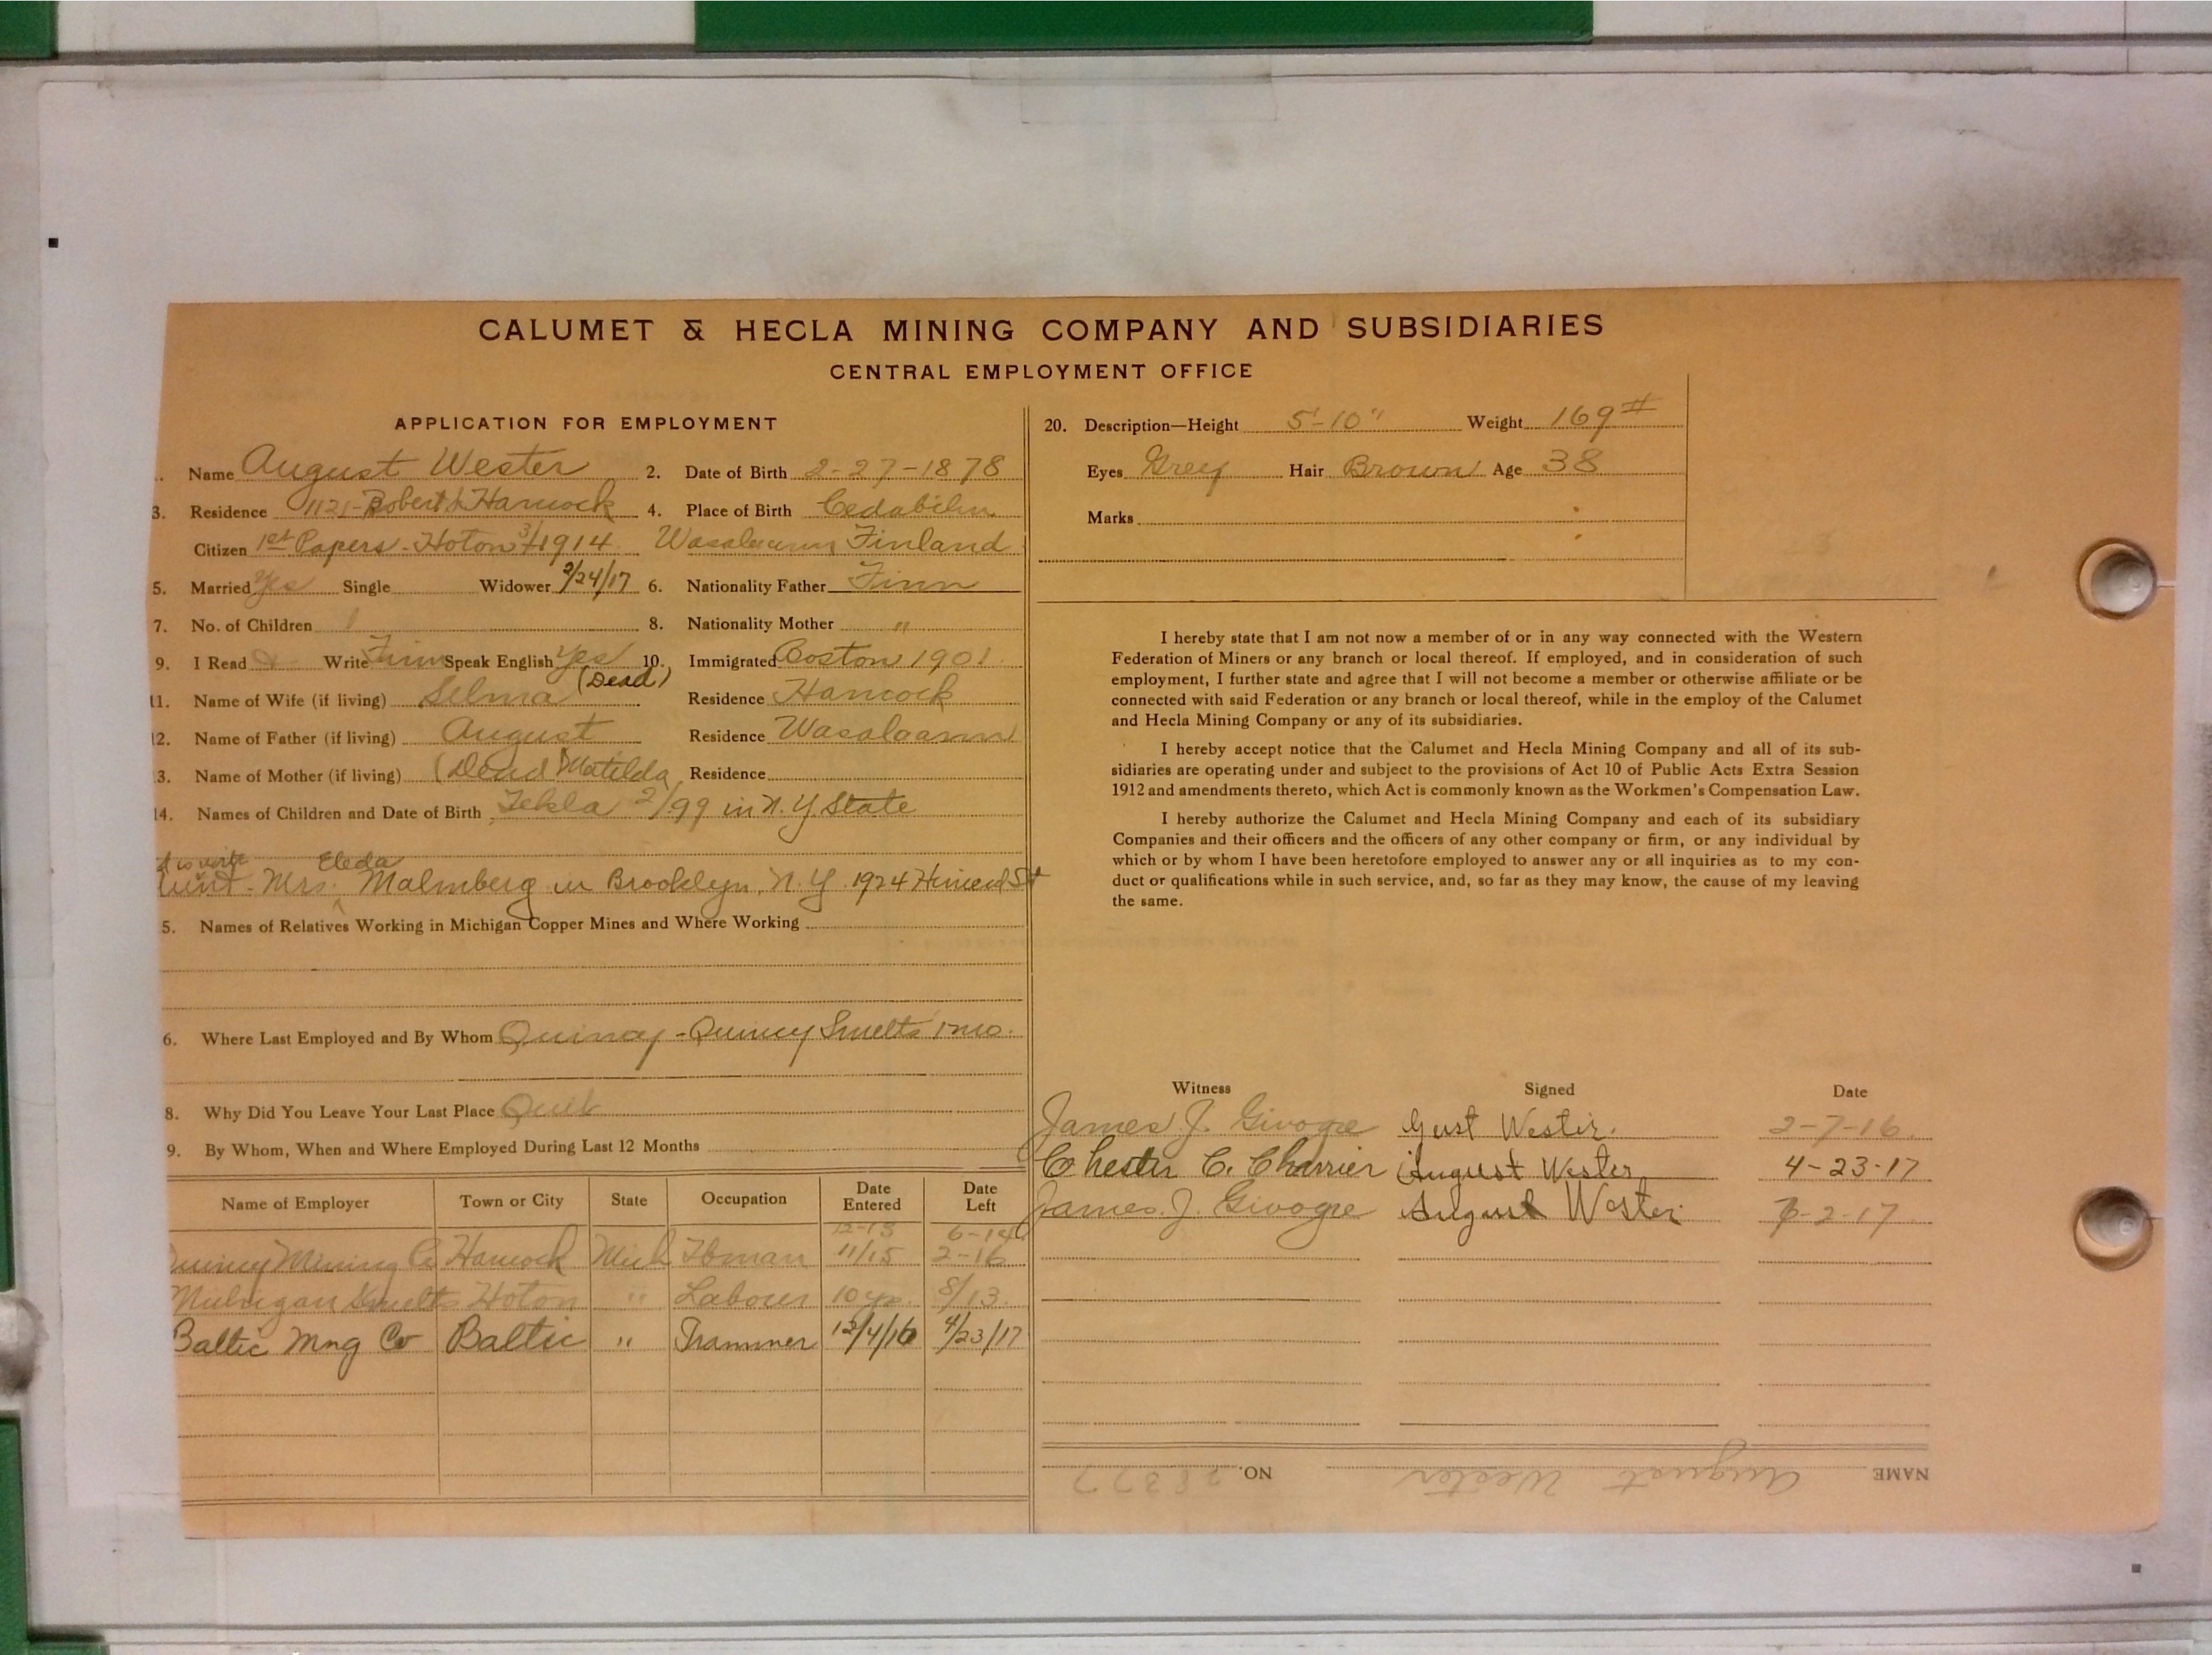 CALUMET & HECLA MINING COMPANY AND SUBSIDIARIES
CENTRAL EMPLOYMENT OFFICE
APPLICATION FOR EMPLOYMENT
Name August Wester 2. Date of Birth 2-27-1878
3. Residence 1121-Robert Hancock 4. Place of Birth
Citizen 1st Papers-Hoton 3/1914 Finland
5. Married Yes Single Widower 2/24/17 6. Nationality Father Finn
7. No. of Children 1 8. Nationality Mother "
9. I Read & Write Finn Speak English Yes 10. Immigrated Boston 1901
(Dead)
11. Name of Wife (if living) Selma Residence Hancock
12. Name of Father (if living) August Residence Wasalaann
13. Name of Mother (if living) (Dead) Matilda Residence
14. Names of Children and Date of Birth Tekla 2/99 in N.Y. State
Eleda
Mrs. Malmberg in Brooklyn, N.Y. 1924
5. Names of Relatives Working in Michigan Copper Mines and Where Working
6. Where Last Employed and By Whom Quincy-Quincy Smelts 1 mo.
8. Why Did You Leave Your Last Place Quit
9. By Whom, When and Where Employed During Last 12 Months
Name of Employer Town or City State Occupation Date Entered Date Left
12-13 6-14
Quincy Mining Co Hancock Mich 11/15 2-16
Michigan Smelts Hoton " Laborer 10 yrs. 8/13
Baltic Mng Co Baltic " Trammer 12/4/16 4/23/17
20. Description—Height 5'-10" Weight 169#
Eyes Grey Hair Brown Age 38
Marks
I hereby state that I am not now a member of or in any way connected with the Western
Federation of Miners or any branch or local thereof. If employed, and in consideration of such
employment, I further state and agree that I will not become a member or otherwise affiliate or be
connected with said Federation or any branch or local thereof, while in the employ of the Calumet
and Hecla Mining Company or any of its subsidiaries.
I hereby accept notice that the Calumet and Hecla Mining Company and all of its sub-
sidiaries are operating under and subject to the provisions of Act 10 of Public Acts Extra Session
1912 and amendments thereto, which Act is commonly known as the Workmen's Compensation Law.
I hereby authorize the Calumet and Hecla Mining Company and each of its subsidiary
Companies and their officers and the officers of any other company or firm, or any individual by
which or by whom I have been heretofore employed to answer any or all inquiries as to my con-
duct or qualifications while in such service, and, so far as they may know, the cause of my leaving
the same.
Witness Signed Date
James J. Givogre Gust Wester. 2-7-16
Chester C. Charrier August Wester 4-23-17
James J. Givogre August Wester 7-2-17
NAME August Wester NO. 28377